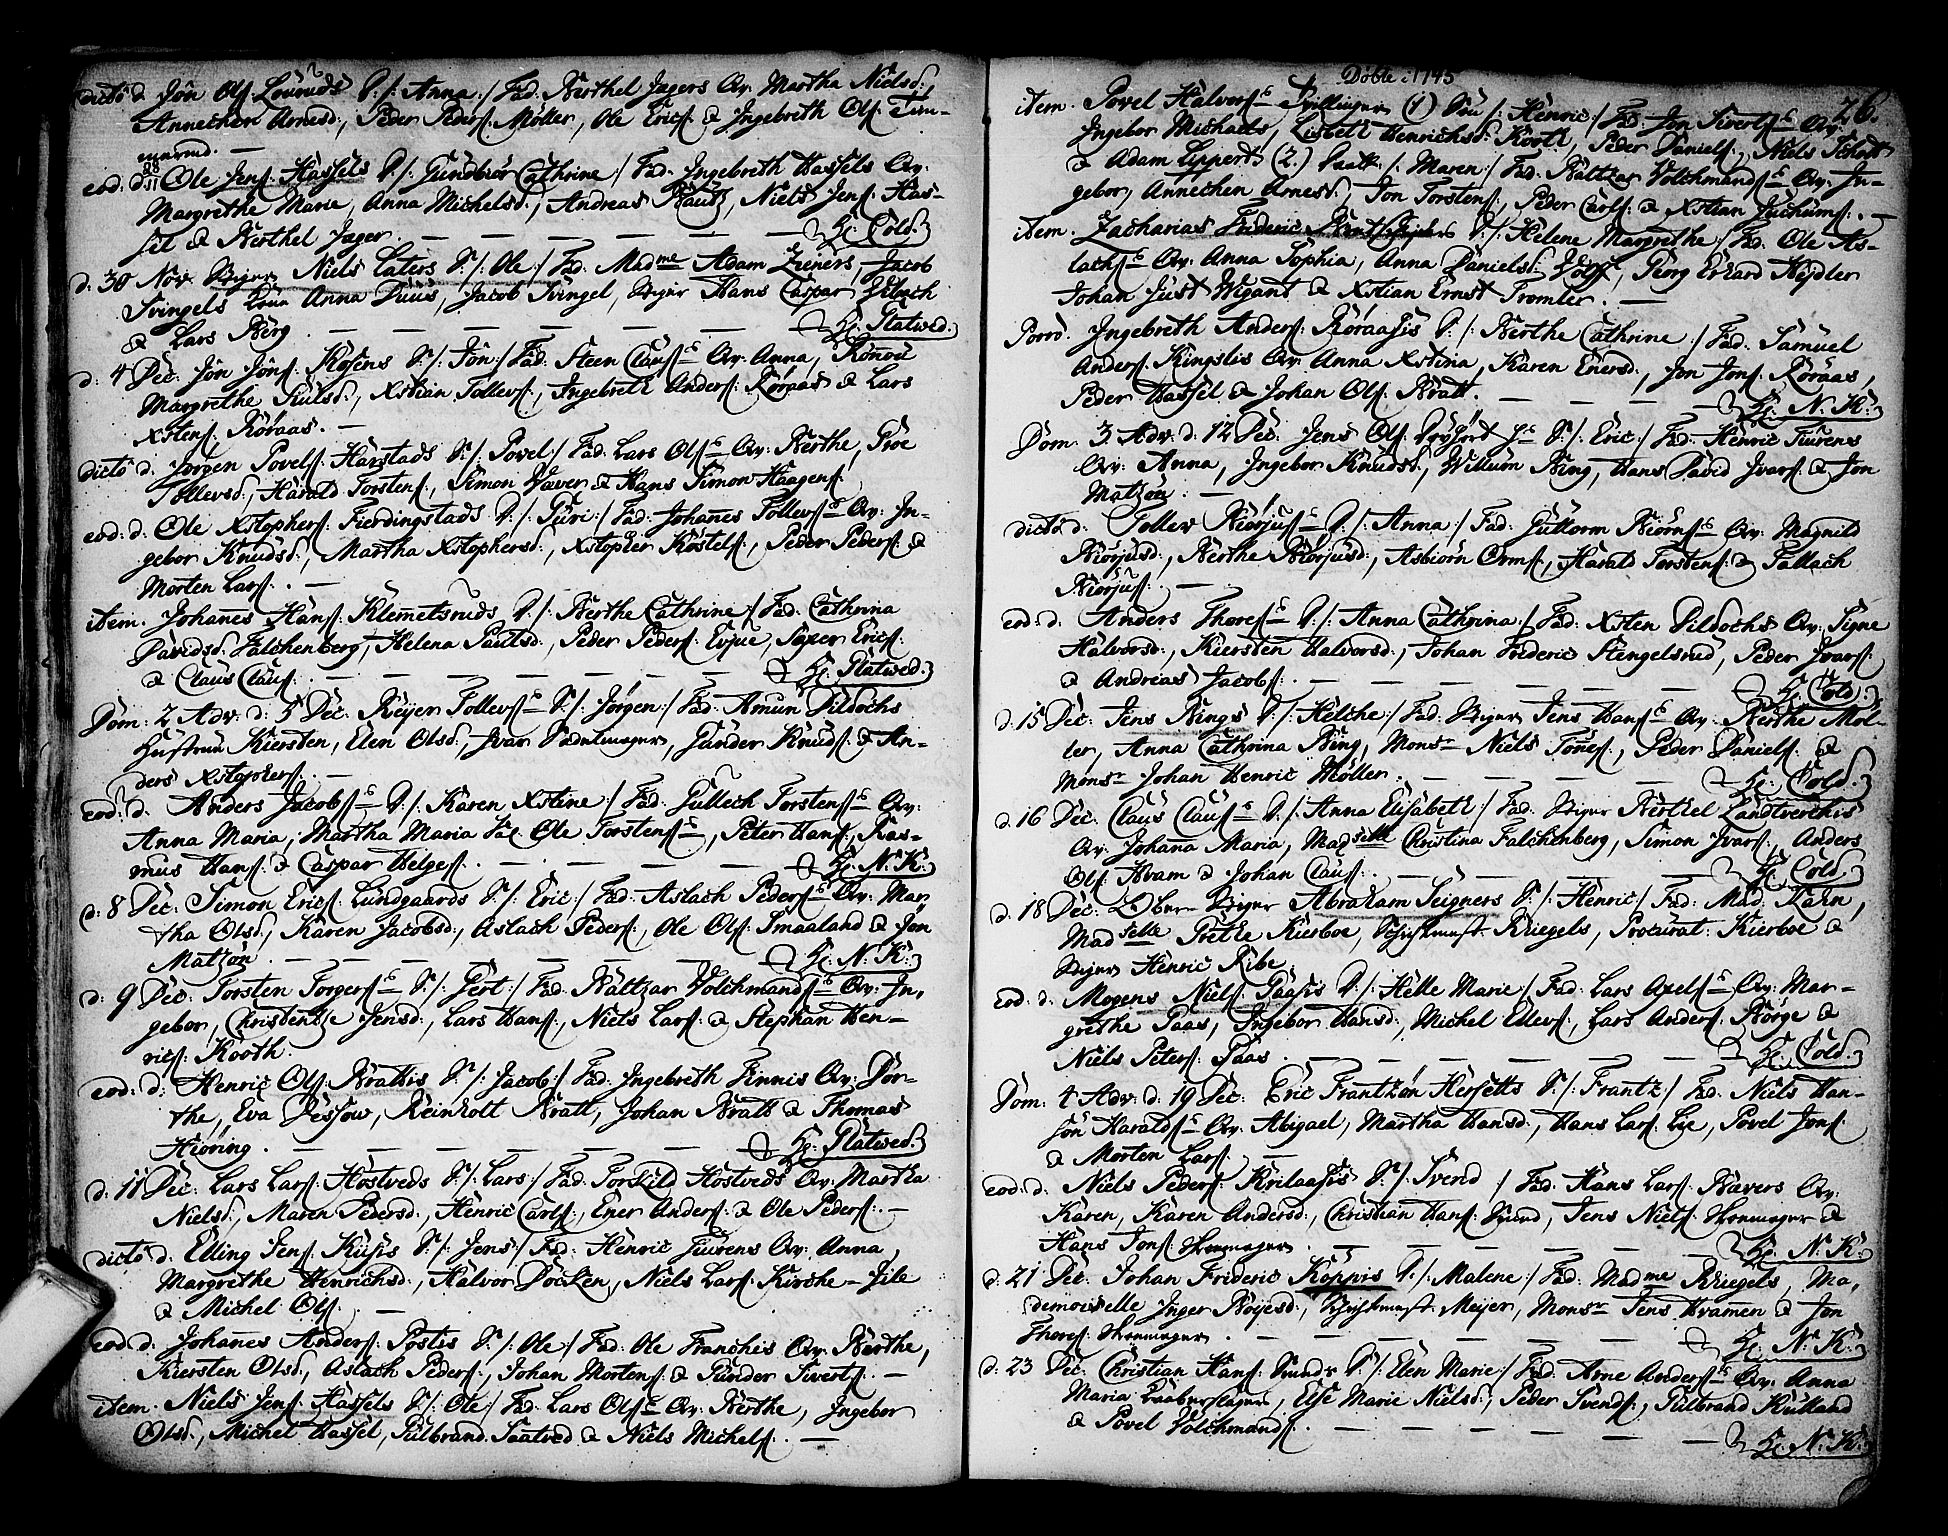 dicto d. Jön Ols. Löuruds D. /: Anna :/ Fad: Berthel Jagers Qv: Martha Nielsd:
Annechen Arnesd:, Peder Peders: Möller, Ole Erics: & Ingebreth Ols: Tim-
mermd. —
eod: d: Ole Jens: Hassels D. /: Gundbiör Cathrine :/ Fad: Ingebreth Hassels Qv:
Margrethe Marie, Anna Michelsd:, Andreas Rauds, Niels Jens: Has-
sel & Berthel Jager. — — — — Hr: Cold.
d: 30 Nov. Niels Laters S. /: Ole :/ Fad: Madme Adam Zieners, Jacob
Svingels Qv: Anna Duus, Jacob Svingel, Hans Caspar Gulach
& Lars Berg. — — — — Hr: Statwed.
d: 4 Dec: Jön Jöns: Mosens S. /: Jön :/ Fad: Steen Claus: Qv: Anna, Rönnou
Margrethe Juulsd:, Xstian Tollevs:, Ingebreth Anders: Röraas & Lars
Xstens: Röraas. —
dicto d. Jörgen Povels: Harstads S. /: Povel :/ Fad: Lars Ols: Qv: Berthe, Groe
Tollevsd:, Harald Torstens:, Simon Vaver & Hans Simon Haagens:
eod: d: Ole Xstophers: Fierdingstads D. /: Guri :/ Fad: Johannes Tollevs: Qv: In-
gebor Knudsd:, Martha Xstophersd:, Xstopher Kostels:, Peder Peders: &
Morten Lars: —
item. Johannes Hans: Klemmetsruds D. /: Berthe Cathrine :/ Fad: Cathrina
Davidsd: Falchenberg, Helena Paulsd:, Peder Peders: Evjue, Joxer Erics:
& Claus Claus: — — — — Hr: Statwed.
Dom: 2 Adv: d: 5 Dec: Reyer Tollevs: S. /: Jörgen :/ Fad: Amun Dildochs
Hustrue Kiersten, Elen Olsd:, Ivar, Gunder Knuds: & An-
ders Xstophers: —
eod: d: Anders Jacobs: D. /: Karen Xstine :/ Fad: Gullech Torstens: Qv:
Anna Maria, Martha Maria Ole Torstens:, Peter Hans:, Ras-
mus Hans: & Caspar Helges: — — — Hr: N: K:
d: 8 Dec: Simon Erics: Lundgaards S. /: Eric :/ Fad: Aslach Peders: Qv: Mar-
tha Olsd:, Karen Jacobsd:, Aslach Peders:, Ole Ols: Smaaland & Jön
Matzön. — — — — Hr: N: K:
d: 9 Dec: Torsten Torgers: S. /: Gert :/ Fad: Baltzar Volchmands: Qv: In-
gebor, Christentze Jensd:, Lars Hans:, Niels Lars: & Stephan Hen-
rics: Kooth.
eod: d: Henric Ols: Brattis S. /: Jacob :/ Fad: Ingebreth Finnis Qv: Dor-
the, Eva Dessow, Reinholt Bratt, Johan Bratt & Thomas
Hiöring. — — — — Hr: Statwed.
d: 11 Dec: Lars Lars: Hostveds S. /: Lars :/ Fad: Torskild Hostveds Qv: Martha
Nielsd:, Maren Pedersd:, Henric Carls:, Ener Anders: & Ole Peders: —
dicto d. Elling Jens: Kusis S. /: Jens :/ Fad: Henric Tiurens Qv: Anna
Margrethe Henrichsd:, Halvor Docken, Niels Lars: Kirche-Jile
& Michel Ols: —
eod d. Johannes Anders: Postis S. /: Ole :/ Fad: Ole Franchis Qv: Berthe,
Kiersten Olsd:, Aslach Peders:, Johan Mortens: & Gunder Siverts: —
item. Niels Jens: Hassels S. /: Ole :/ Fad: Lars Ols: Qv: Berthe, Ingebor
Olsd:, Michel Hassel, Gulbrand Saatved & Niels Michels: —
Döbte i 1745
26.
item. Povel Halvors: Tvillinger (1) Sön /: Henric :/ Fad: Jon Siverts: Qv:
Ingebor Michaels, Lisbeth Henrichsd: Koott, Peder Daniels:, Niels Schott
& Adam Lippert (2.) Datt: /: Maren :/ Fad: Baltzar Volchmands: Qv: In-
gebor, Annechen Arnesd:, Jon Torstens:, Peder Carls: & Xstian Jochums: —
item. Zacharias Frideric D. /: Helene Margrethe :/ Fad: Ole As-
lachs: Qv: Anna Sophia, Anna Danielsd: Wolff, Georg Erhard Heydler
Johan Just Wigant & Xstian Ernst Tromler. —
Porro. Ingebreth Anders: Röraasis D. /: Berthe Cathrine :/ Fad: Samuel
Anders: Kingslis Qv: Anna Xstina, Karen Enersd:, Jon Jons: Röraas,
Peder Hassel & Johan Ols: Bratt. — — — Hr: N: K:
Dom: 3. Adv: d. 12 Dec: Jens Ols: S. /: Eric :/ Fad: Henric Tiurens
Qv: Anna, Ingebor Knudsd:, Willum Bing, Hans David Ivars: & Jon
Matzön. —
dicto d. Tollev Biörjus: D. /: Anna :/ Fad: Guttorm Biörns: Qv: Magnild
Biörjusd:, Berthe Biörjusd:, Asbiörn Orms:, Harald Torstens: & Tallach
Biörjus: —
eod: d. Anders Thores: D. /: Anna Cathrina :/ Fad: Xsten Dildochs Qv: Signe
Halvorsd:, Kiersten Halvorsd:, Johan Frideric Stengelsrud, Peder Ivars:
& Andreas Jacobs: — — — — Hr: Cold.
d: 15 Dec: Jens Bings D. /: Helche :/ Fad: Jens Hans: Qv: Berthe Möl-
ler, Anna Cathrina Bing, Monsr Niels Tönes:, Peder Daniels: &
Monsr Johan Henric Möller. — — — Hr: Cold.
d: 16 Dec: Claus Claus: D. /: Anna Elisabeth :/ Fad: Berthel Landtverchis
Qv: Johana Maria, Madselle Christina Falchenberg, Simon Ivars:, Anders
Ols: Hvam & Johan Claus: — — — Hr: Cold.
d: 18 Dec: Ober Abraham Seigners S. /: Henric :/ Fad: Mad: Kahn,
Madselle Grethe Kierboe, Kriegels, Procurat: Kierboe &
Henric Ribe.
eod: d: Mogens Niels: Gaasis D. /: Helle Marie :/ Fad: Lars Axels: Qv: Mar-
grethe Gaas, Ingebor Hansd:, Michel Ellevs:, Lars Anders: Börge &
Niels Peters: Gaas. — — — — Hr: Cold.
Dom: 4 Adv: d: 19 Dec: Eric Frantzön Hersetts S. /: Frantz :/ Fad: Niels Han-
sön Haralds: Qv: Abigael, Martha Hansd:, Hans Lars: Lie, Povel Jons:
& Morten Lars: —
eod: d: Niels Peders: Krilaasis S. /: Svend :/ Fad: Hans Lars: Bavers Qv:
Karen, Karen Andersd:, Christian Hans:, Jens Niels: &
Hans Jons: — — — — Hr: N: K:
d: 21 Dec: Johan Frideric Koppis D. /: Malene :/ Fad: Madme Kriegels, Ma-
demoiselle Inger Böyesd:, Meyer, Monsr Jens Kramen & Jon
Thores: — — — — Hr: N: K:
d: 23 Dec: Christian Hans: D. /: Elen Marie :/ Fad: Arne Anders: Qv: Anna
Maria, Else Marie Nielsd:, Peder Svends:, Gulbrand Rulland
& Povel Volchmands: — — — — Hr: N: K: